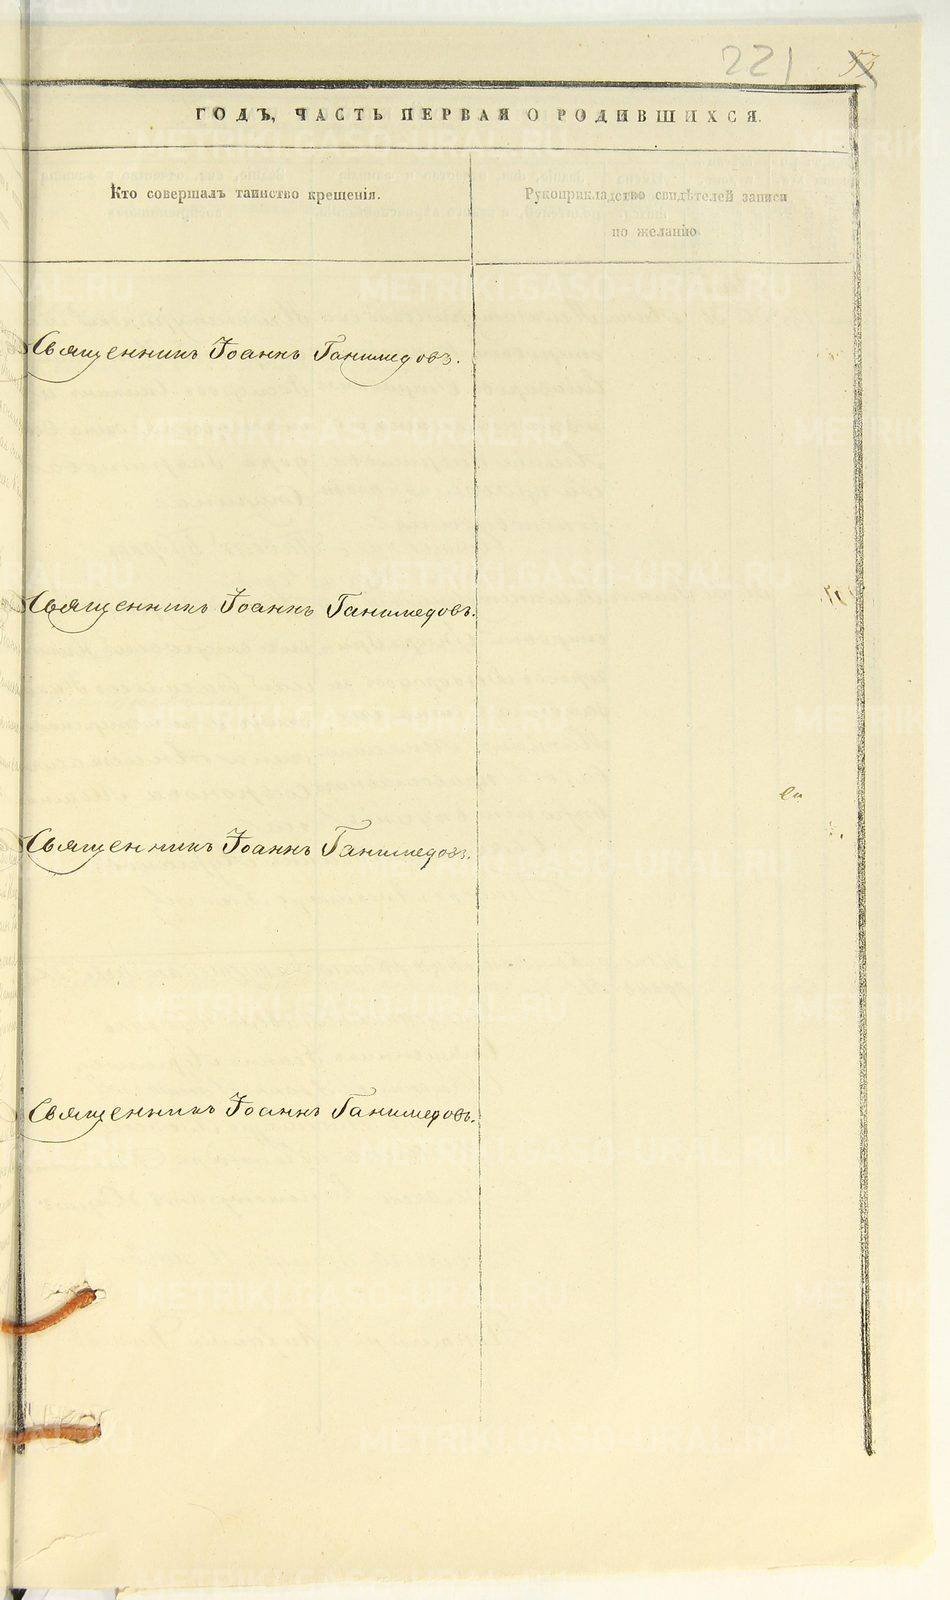 221
53
ГОДЪ, ЧАСТЬ ПЕРВАЯ О РОДИВШИХСЯ.
Кто совершалъ таинство крещенія.
Рукоприкладство свидѣтелей записи
по желанію
Священникъ Іоаннъ Ганимедовъ.
Священникъ Іоаннъ Ганимедовъ.
Священникъ Іоаннъ Ганимедовъ.
Священникъ Іоаннъ Ганимедовъ.
METRIKI.GASO-URAL.RU